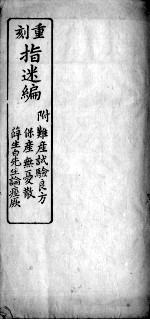 重刻
指迷編
附
難產試驗良方
保產無憂散
薛生白先生論瘧厥